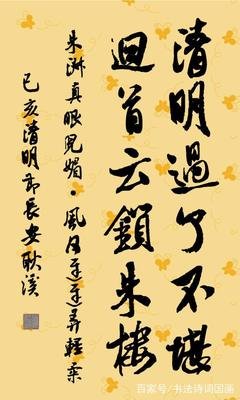 清明過了不堪
迴首云鎖朱樓
朱淑真眼兒媚·風日迟迟弄輕柔
己亥清明節長安耿溪
百家号/书法诗词国画